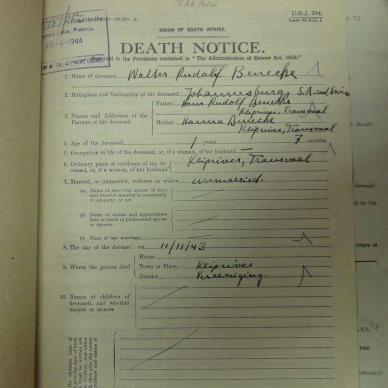 20-4-1944
U.D.J. 294.
UNION OF SOUTH AFRICA.
DEATH NOTICE.
contained in "The Administration of Estates Act, 1913."
1. Name of deceased Walter Rudolf Benecke
2. Birthplace and Nationality of the deceased Johannesburg S.A. and Swiss
3. Names and Addresses of the Parents of the deceased
Father Hans Rudolf Benecke
Kliprivier, Transvaal
Mother Hanna Benecke
Kliprivier, Transvaal
4. Age of the deceased 1 years 7 months
5. Occupation in life of the deceased, or, if a woman, of her husband —
6. Ordinary place of residence of the deceased, or, if a woman, of her husband Kliprivier, Transvaal
7. Married, or unmarried, widower or widow unmarried.
(a) Name of surviving spouse (if any) and whether married in community of property or not
(b) Name or names and approximate date of death of predeceased spouse or spouses
(c) Place of last marriage
8. The day of the decease: on 11/11/43
9. Where the person died
House
Town or Place Kliprivier
District Vereeniging.
10. Names of children of deceased, and whether majors or minors